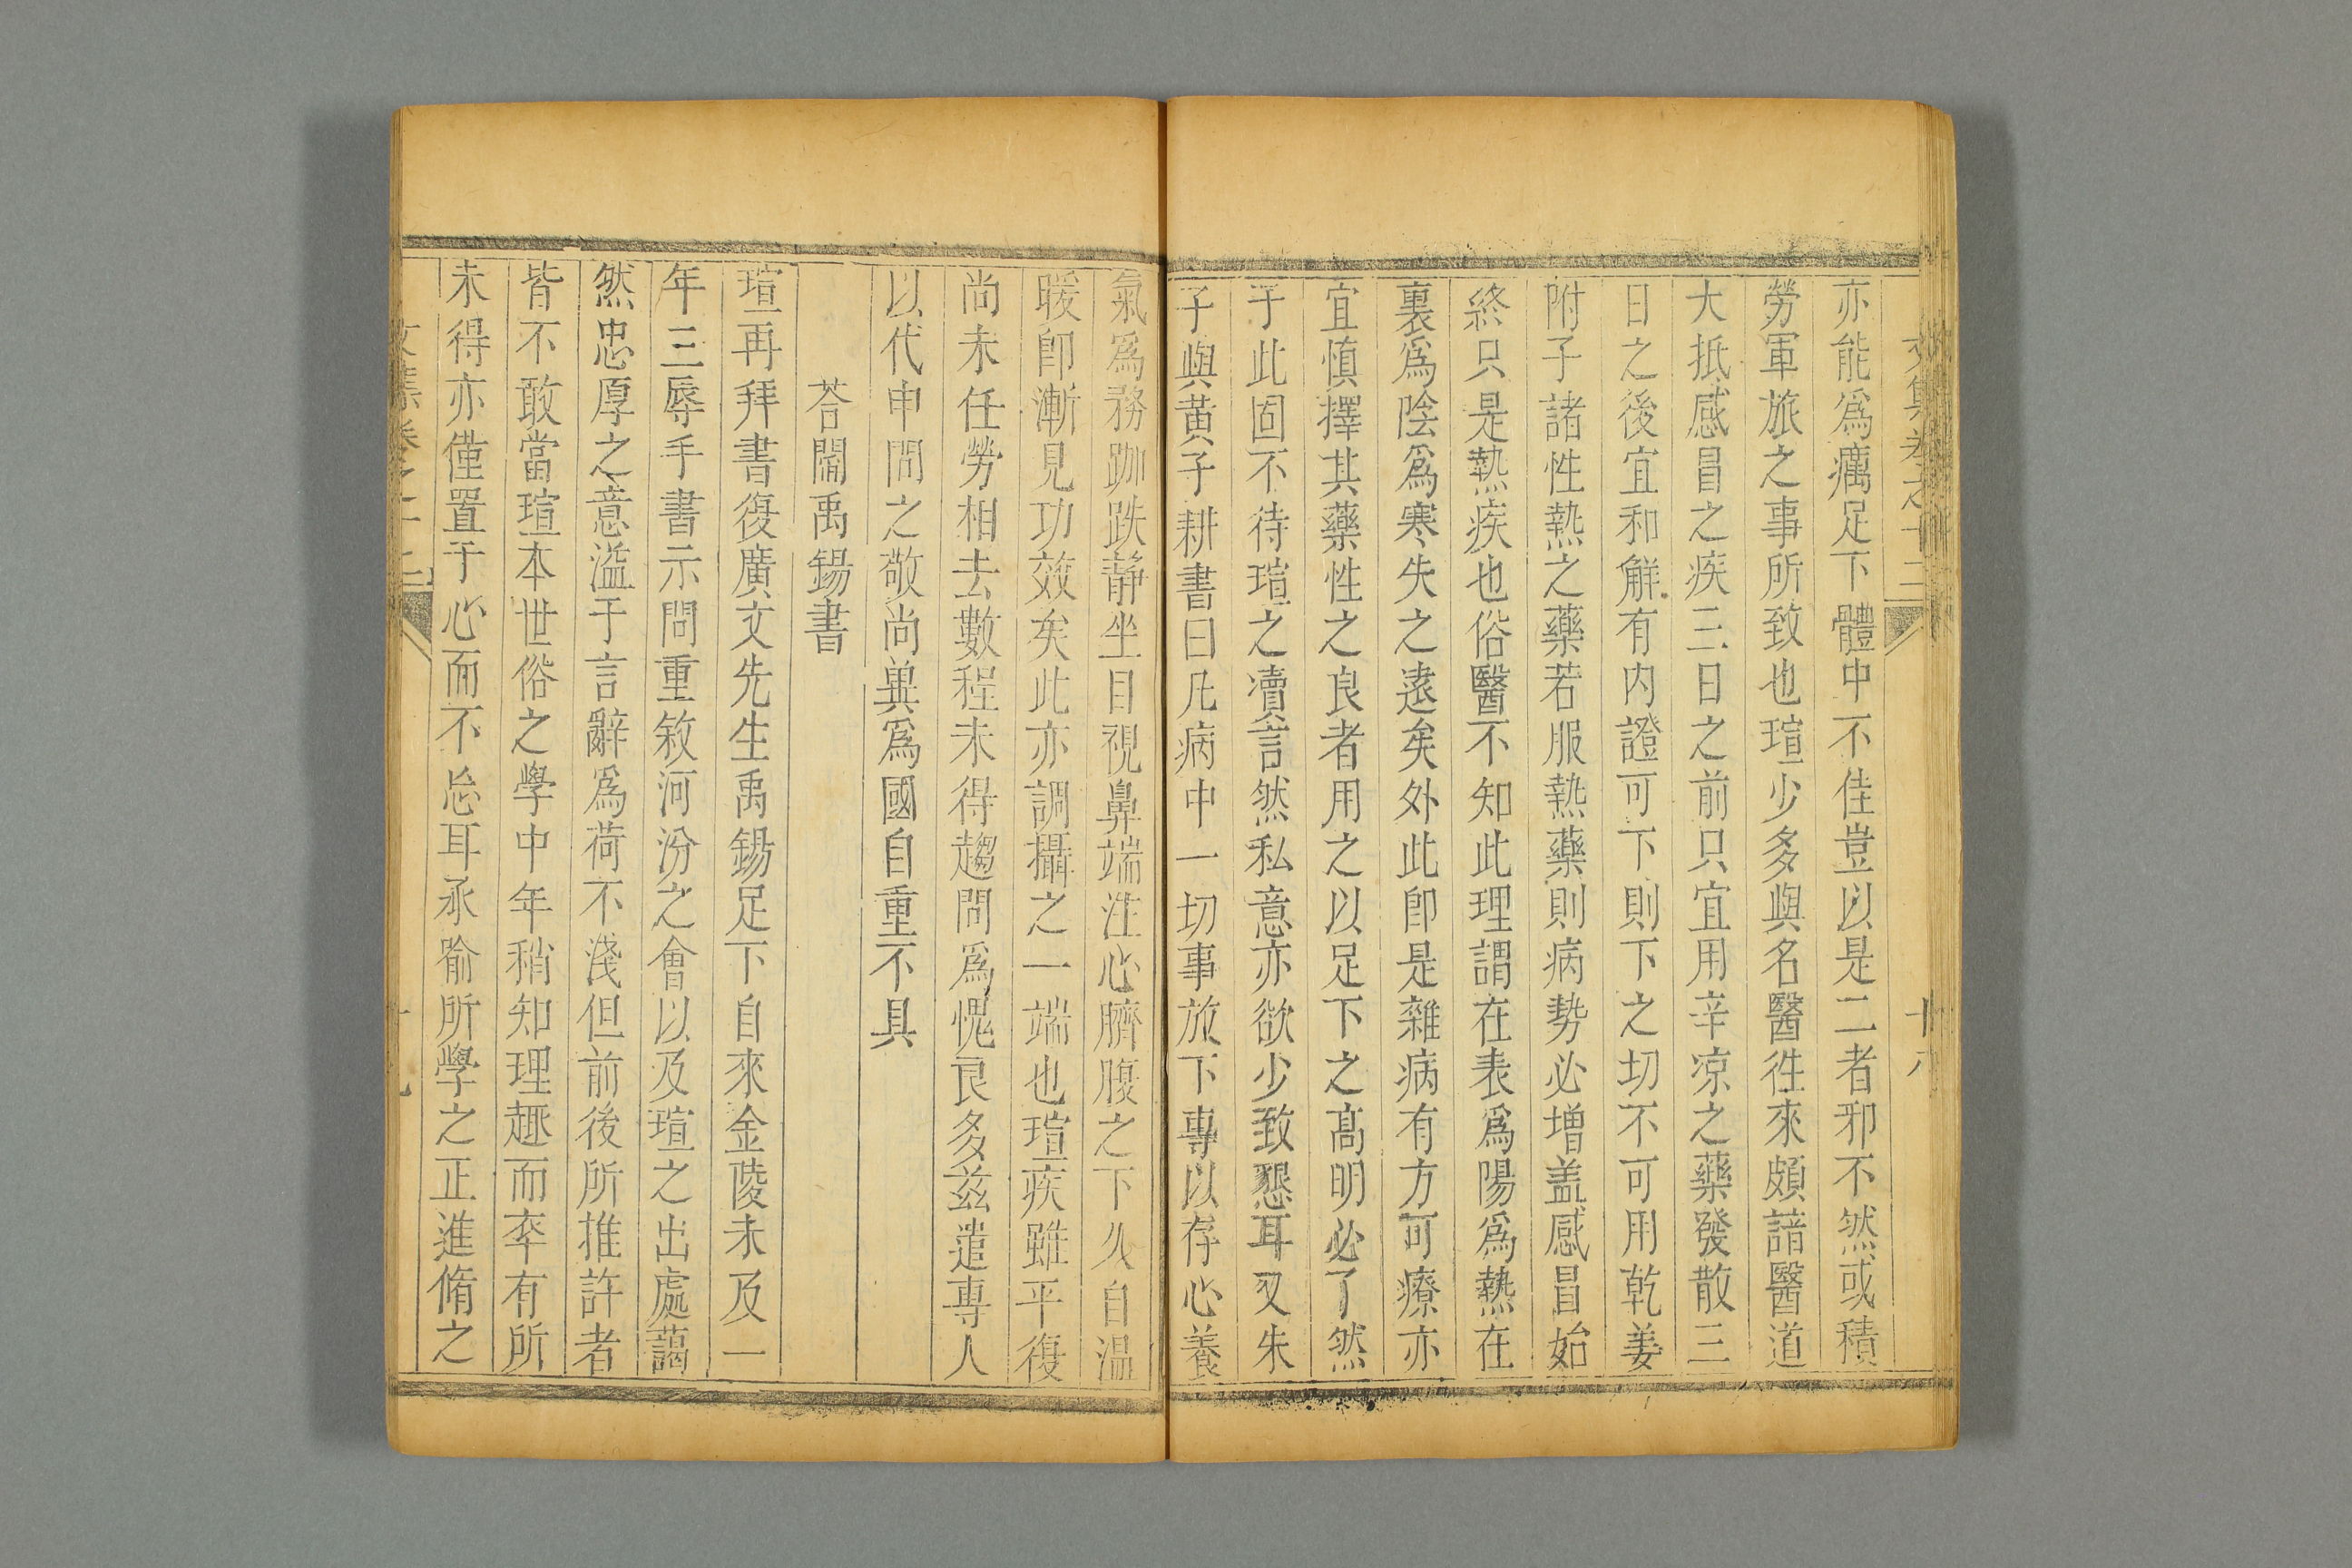 亦能爲癘足下體中不佳豈以是二者邪不然或積
勞軍旅之事所致也瑄少多與名醫徃來頗諳醫道
大抵感冒之疾三日之前只宜用辛凉之藥發散三
日之後宜和解有内證可下則下之切不可用乾姜
附子諸性熱之藥若服熱藥則病勢必增盖感冒始
終只是熱疾也俗醫不知此理謂在表爲陽爲熱在
裏爲陰爲寒失之遠矣外此即是雜病有方可療亦
宜慎擇其藥性之良者用之以足下之髙明必了然
于此固不待瑄之瀆言然私意亦欲少致懇耳又朱
子與黄子耕書曰凡病中一切事放下專以存心養
氣爲務跏趺静坐目視鼻端注心臍腹之下久自温
暖即漸見功效矣此亦調攝之一端也瑄疾雖平復
尚未任勞相去數程未得趨問爲愧良多兹遣專人
以代申問之敬尚兾爲國自重不具
荅閻禹錫書
瑄再拜書復廣文先生禹錫足下自來金陵未及一
年三辱手書示問重叙河汾之會以及瑄之出處藹
然忠厚之意溢于言辭爲荷不淺但前後所推許者
皆不敢當瑄本世俗之學中年稍知理趣而卒有所
未得亦僅置于心而不忘耳承喻所學之正進脩之
文集卷之十二